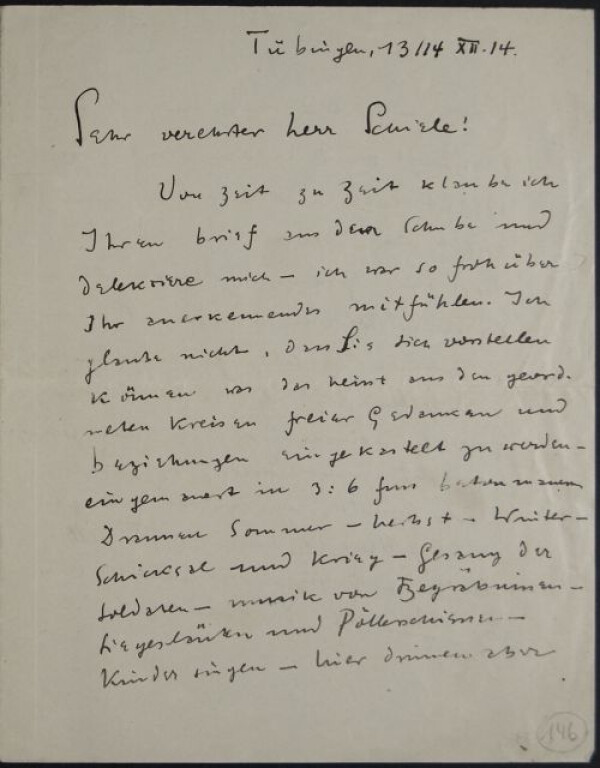 Tübingen, 13/14 XII. 14.
Sehr verehrter herr Schiele!
Von Zeit zu Zeit klaube ich
Ihren brief aus dem Schube und
delektiere mich – ich war so froh über
Ihr anerkennendes mitfühlen. Ich
glaube nicht, dass Sie sich vorstellen
können was das heist aus den geord-
neten Kreisen freier Gedanken und
beziehungen eingekastelt zu werden –
eingemauert in 3:6 fuss betonmauern
Draussen Sommer – herbst – Winter –
Schicksal und Krieg – Gesang der
Soldaten – musik von Begräbnissen –
Siegesläuten und Pöllerschiessen –
Kinder singen – hier drinnen aber
146